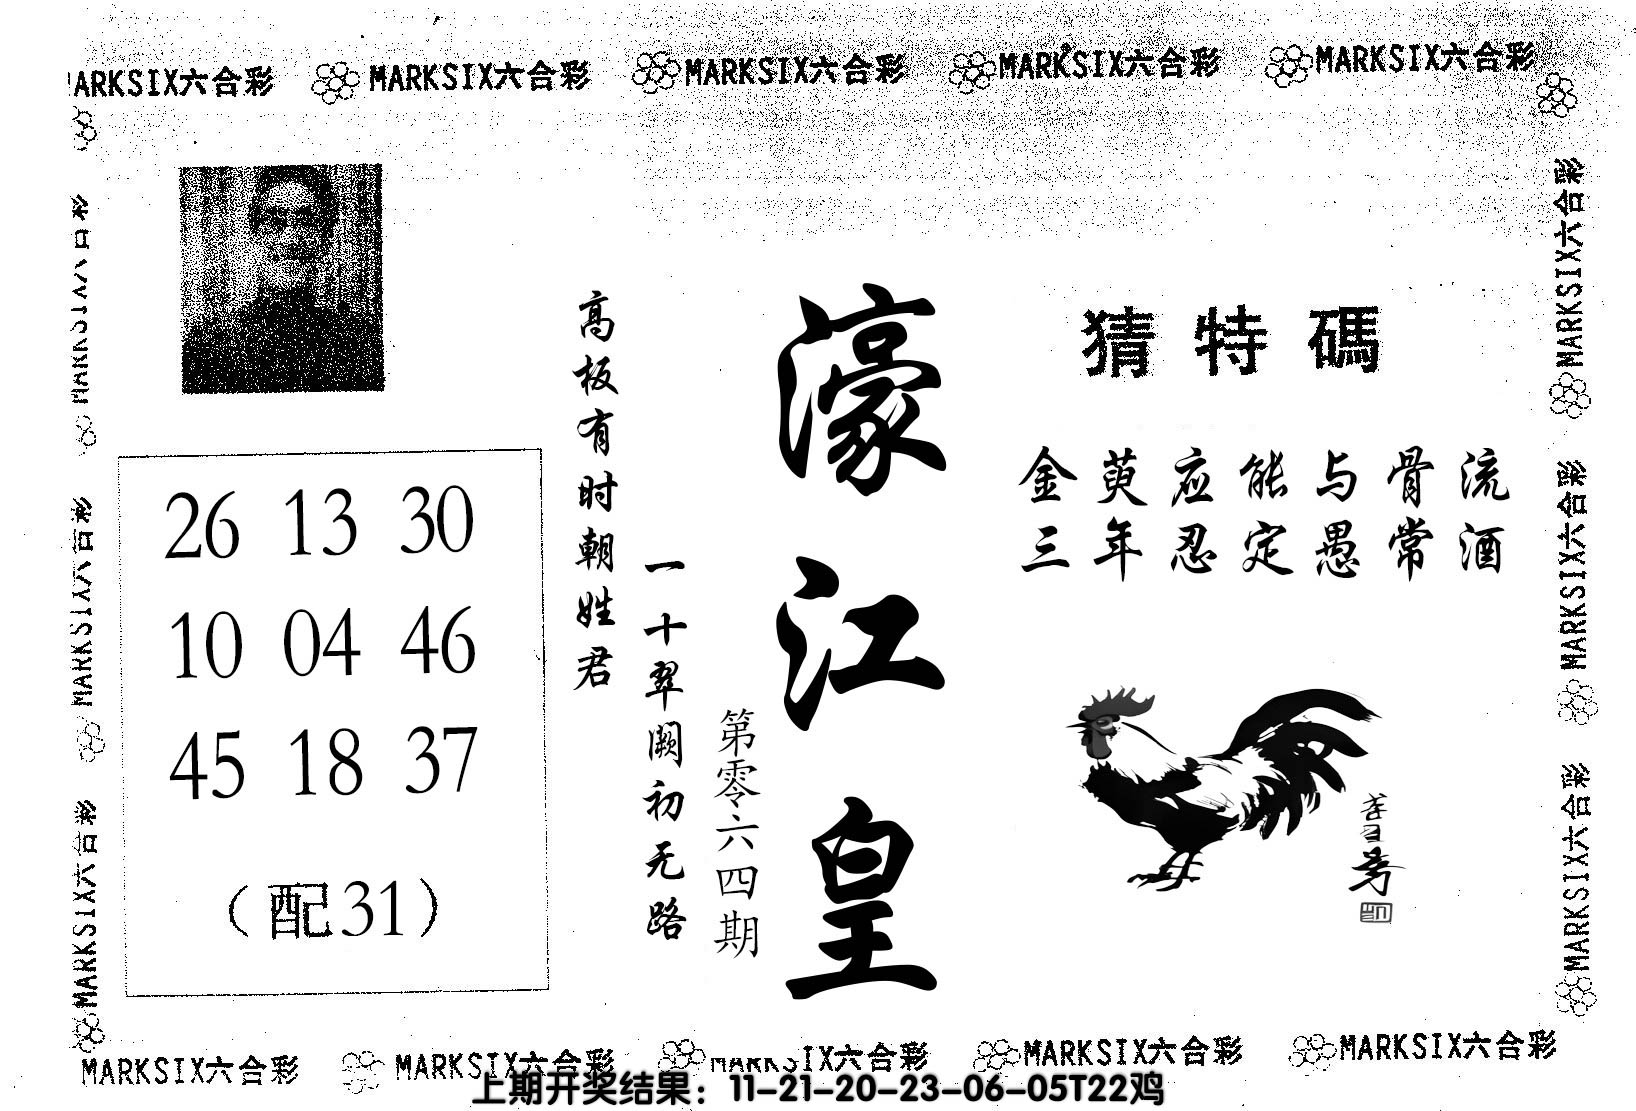 MARKSIX六合彩 MARKSIX六合彩 MARKSIX六合彩 MARKSIX六合彩 MARKSIX六合彩
MARKSIX六合彩
MARKSIX六合彩
MARKSIX六合彩
26 13 30
10 04 46
45 18 37
（配31）
高板有时朝姓君
一十翠阙初无路
第零六四期
濠江皇
猜特碼
金萸应能与骨流
三年忍定愚常酒
MARKSIX六合彩
MARKSIX六合彩
MARKSIX六合彩
MARKSIX六合彩 MARKSIX六合彩 MARKSIX六合彩 MARKSIX六合彩 MARKSIX六合彩
上期开奖结果：11-21-20-23-06-05T22鸡